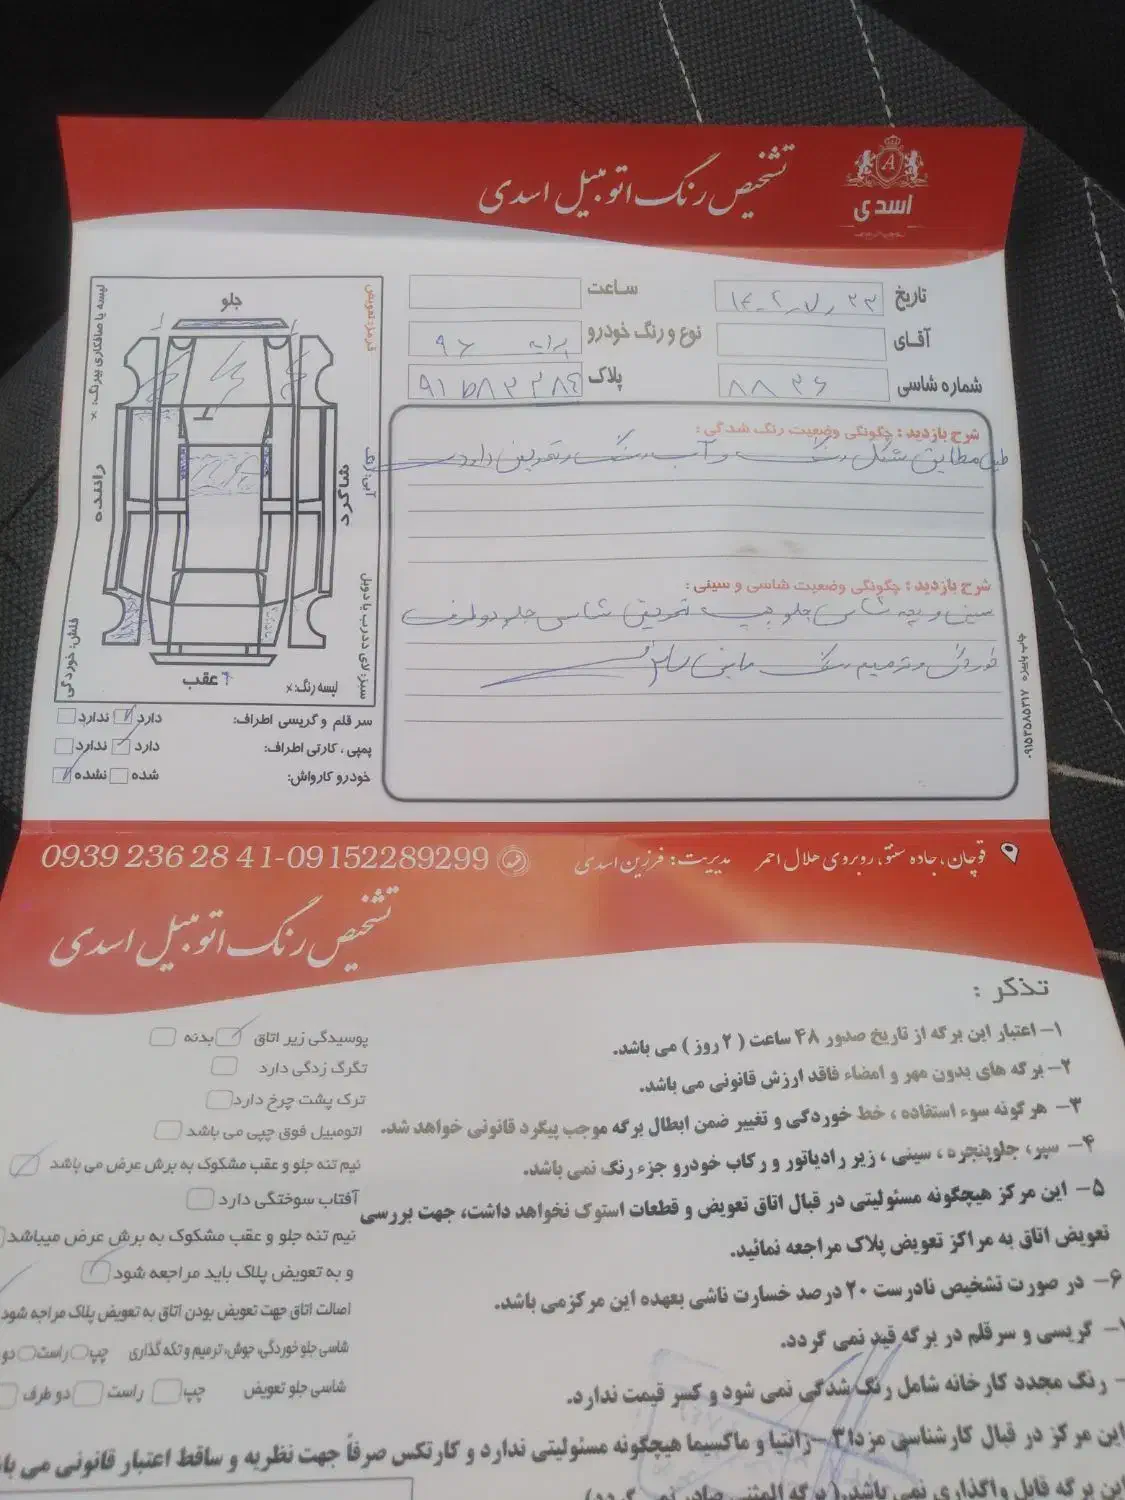 تشخیص رنگ اتومبیل اسدی
A
اسدی
تاریخ
ساعت
آقای
نوع و رنگ خودرو پراید ۹۶
شماره شاسی ۸۸۳۶
پلاک
شرح بازدید : چگونگی وضعیت رنگ شدگی :
طبق مطابق شکل رنگ و آب رنگ و تعویض دارد
شرح بازدید : چگونگی وضعیت شاسی و سینی :
سینی و بچه شاسی جلو چپ تعویض شاسی جلو دو طرف
خوردگی و ترمیم رنگ
جلو
عقب
راننده
شاگرد
لیسه یا صافکاری بیرنگ: x
قرمز: تعویض
آبی: رنگ
فلش: خوردگی
لیسه رنگ: x
سبز: لای درب یا دوبل
سر قلم و گریسی اطراف: دارد ندارد
پمپی ، کارتی اطراف: دارد ندارد
خودرو کارواش: شده نشده
چاپ پاییزه ۰۹۱۵۳۵۸۵۳۱۷
قوچان، جاده سنتو، روبروی هلال احمر مدیریت: فرزین اسدی
0939 236 28 41-09152289299
تشخیص رنگ اتومبیل اسدی
تذکر :
۱- اعتبار این برگه از تاریخ صدور ۴۸ ساعت ( ۲ روز ) می باشد.
۲- برگه های بدون مهر و امضاء فاقد ارزش قانونی می باشد.
۳- هرگونه سوء استفاده ، خط خوردگی و تغییر ضمن ابطال برگه موجب پیگرد قانونی خواهد شد.
۴- سپر، جلوپنجره ، سینی ، زیر رادیاتور و رکاب خودرو جزء رنگ نمی باشد.
۵- این مرکز هیچگونه مسئولیتی در قبال اتاق تعویض و قطعات استوک نخواهد داشت، جهت بررسی
تعویض اتاق به مراکز تعویض پلاک مراجعه نمائید.
۶- در صورت تشخیص نادرست ۲۰ درصد خسارت ناشی بعهده این مرکزمی باشد.
- گریسی و سرقلم در برگه قید نمی گردد.
- رنگ مجدد کارخانه شامل رنگ شدگی نمی شود و کسر قیمت ندارد.
این مرکز در قبال کارشناسی مزدا۳ -زانتیا و ماکسیما هیچگونه مسئولیتی ندارد و کارتکس صرفاً جهت نظریه و ساقط اعتبار قانونی می با
این برگه قابل واگذاری نمی باشد.( برگه المثنی صادر نمی گردد)
پوسیدگی زیر اتاق بدنه
تگرگ زدگی دارد
ترک پشت چرخ دارد
اتومبیل فوق چپی می باشد
نیم تنه جلو و عقب مشکوک به برش عرض می باشد
آفتاب سوختگی دارد
نیم تنه جلو و عقب مشکوک به برش عرض میباشد
و به تعویض پلاک باید مراجعه شود
اصالت اتاق جهت تعویض بودن اتاق به تعویض پلاک مراجه شود
شاسی جلو خوردگی، جوش، ترمیم و تکه گذاری چپ راست دو
شاسی جلو تعویض چپ راست دو طرف